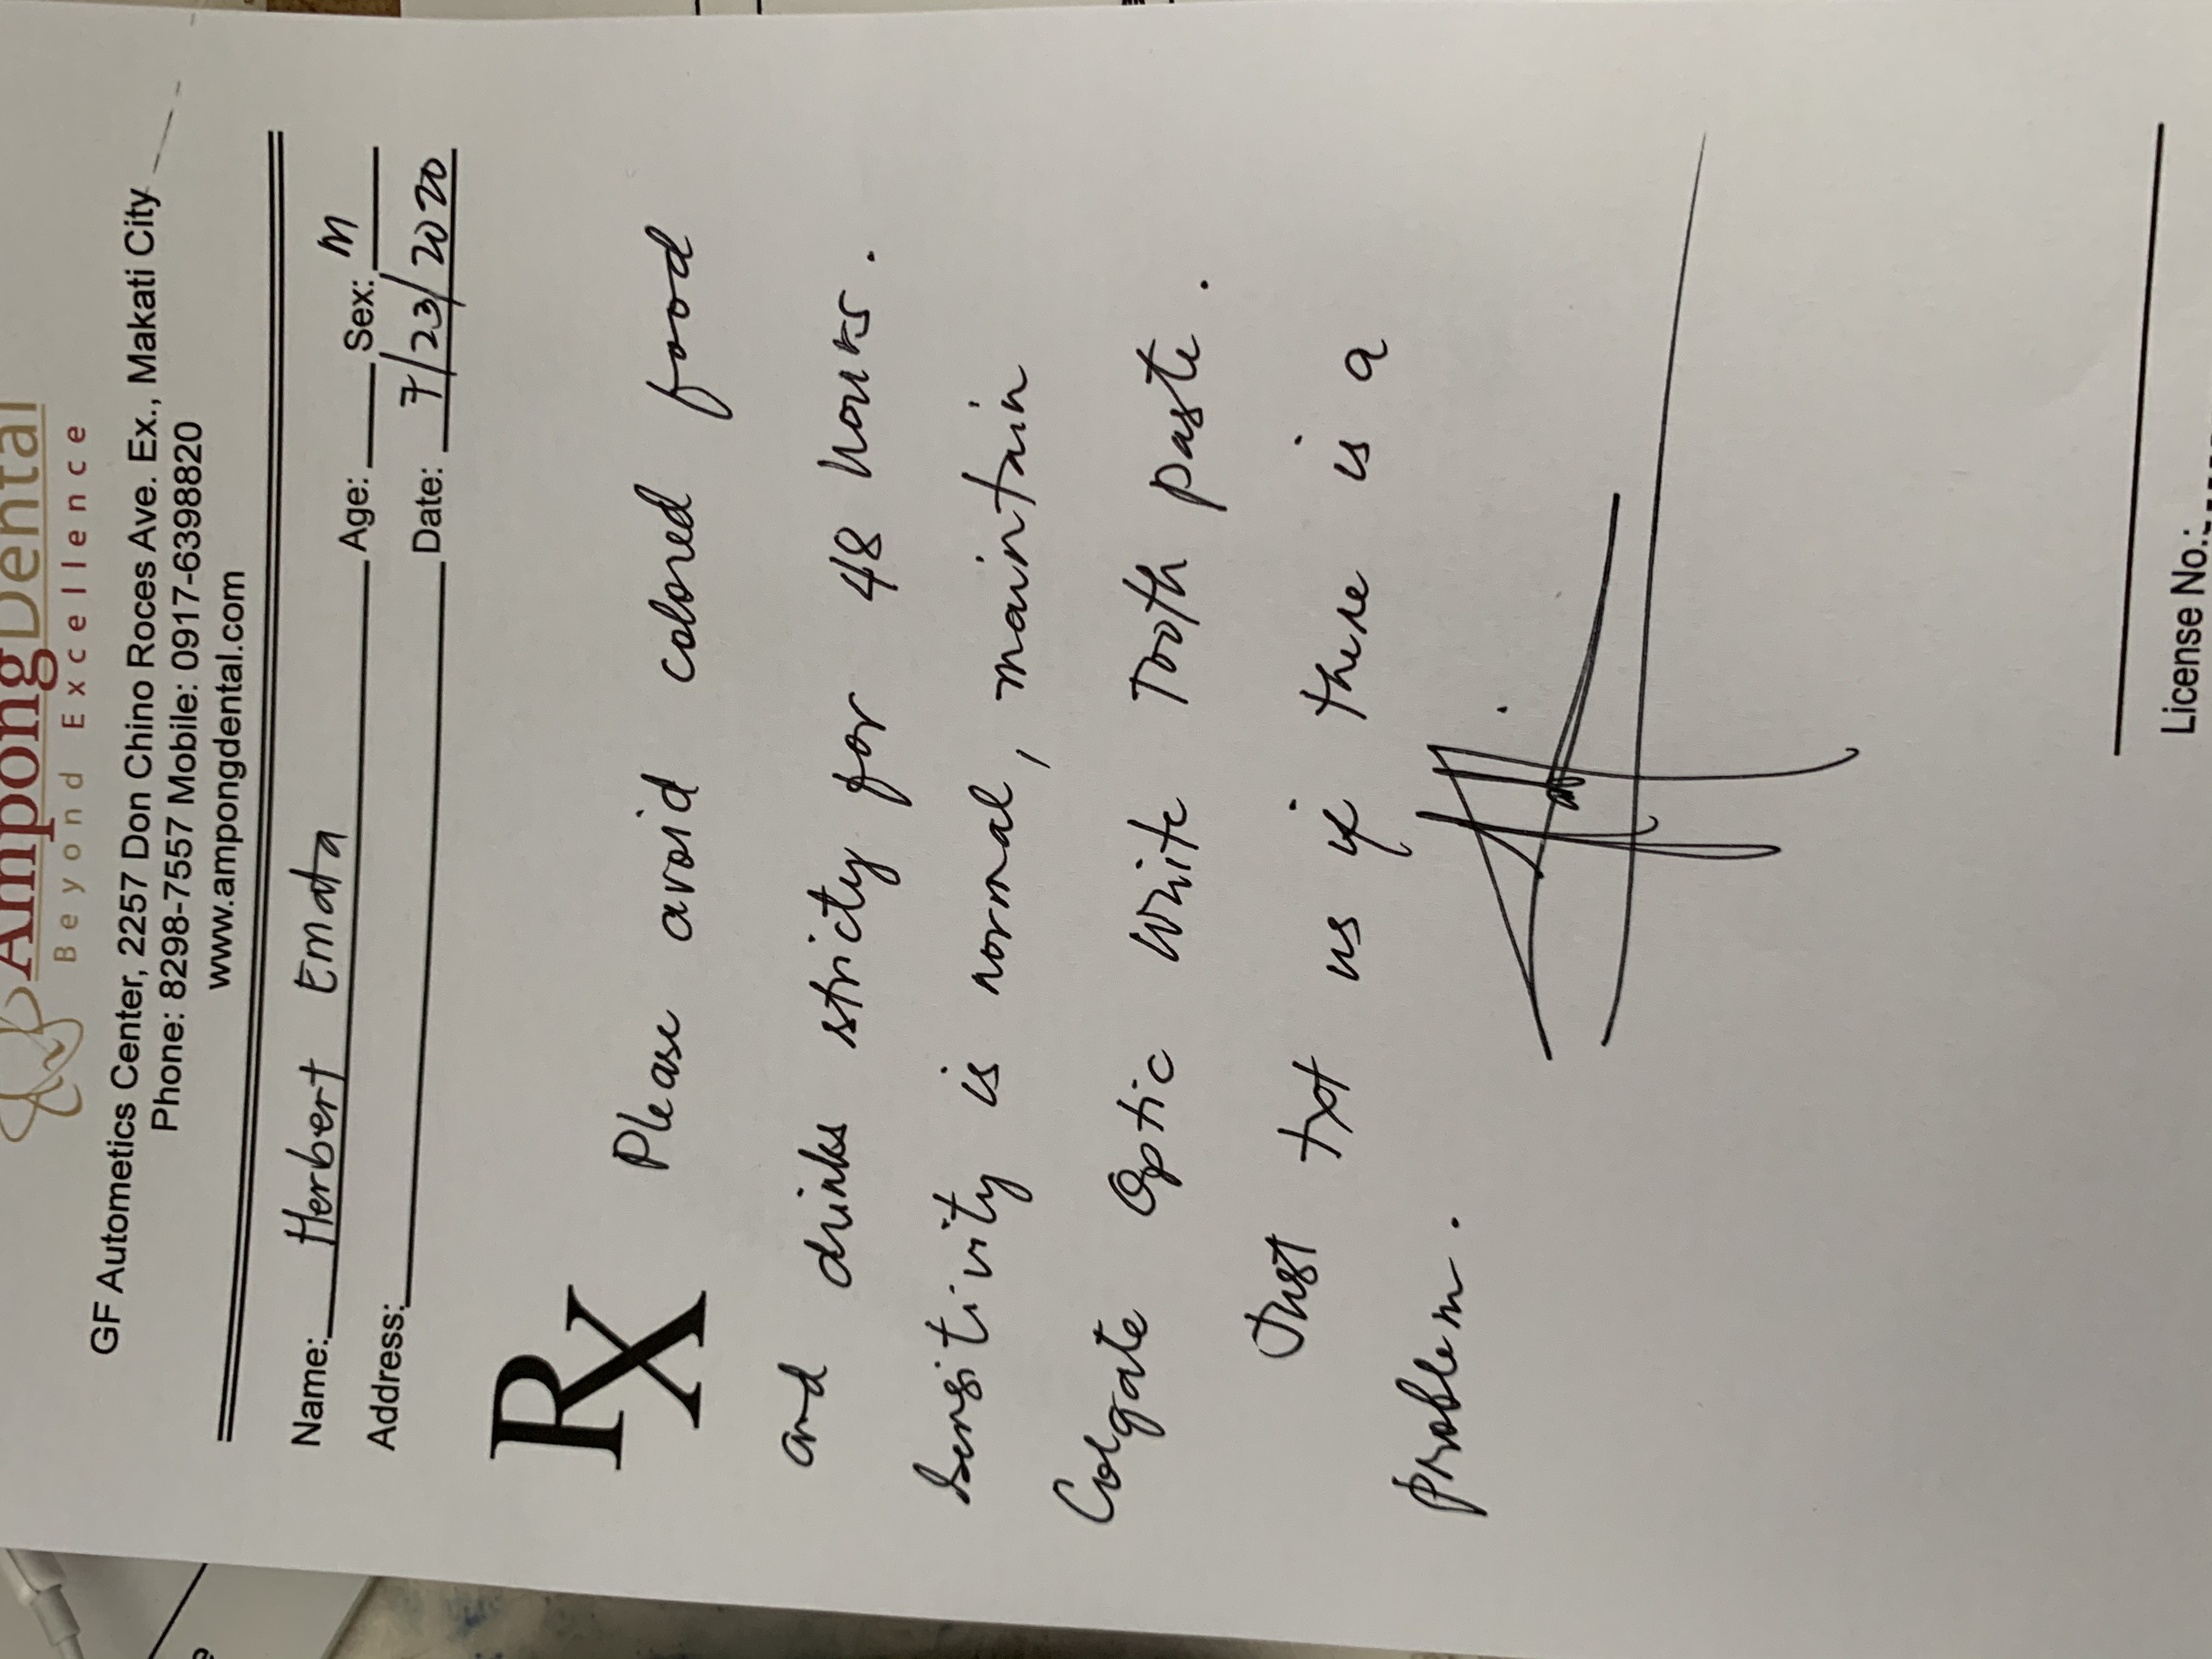 AmpongDental
Beyond Excellence
GF Autometics Center, 2257 Don Chino Roces Ave. Ex., Makati City
Phone: 8298-7557 Mobile: 0917-6398820
www.ampongdental.com
Name: Herbert Emata Age: Sex: M
Address: Date: 7/23/2020
Rx Please avoid colored food
and drinks stricty for 48 hours.
Sensitivity is normal, maintain
Colgate Optic White Tooth paste.
Just txt us if there is a
problem.
License No.: